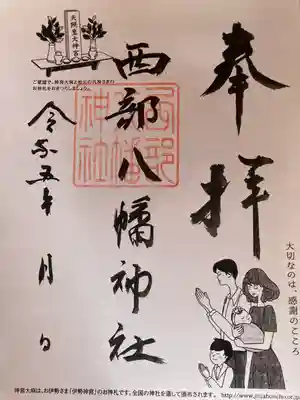 奉拝
大切なのは、感謝のこころ
西部八幡神社
西部八幡神社
令和五年 月 日
天照皇大神宮
ご家庭で、神宮大麻と地元の氏神さまの
お神札をおまつりしましょう。
神宮大麻は、お伊勢さま「伊勢神宮」のお神札です。全国の神社を通して頒布されます。
http://www.jinjahoncho.or.jp